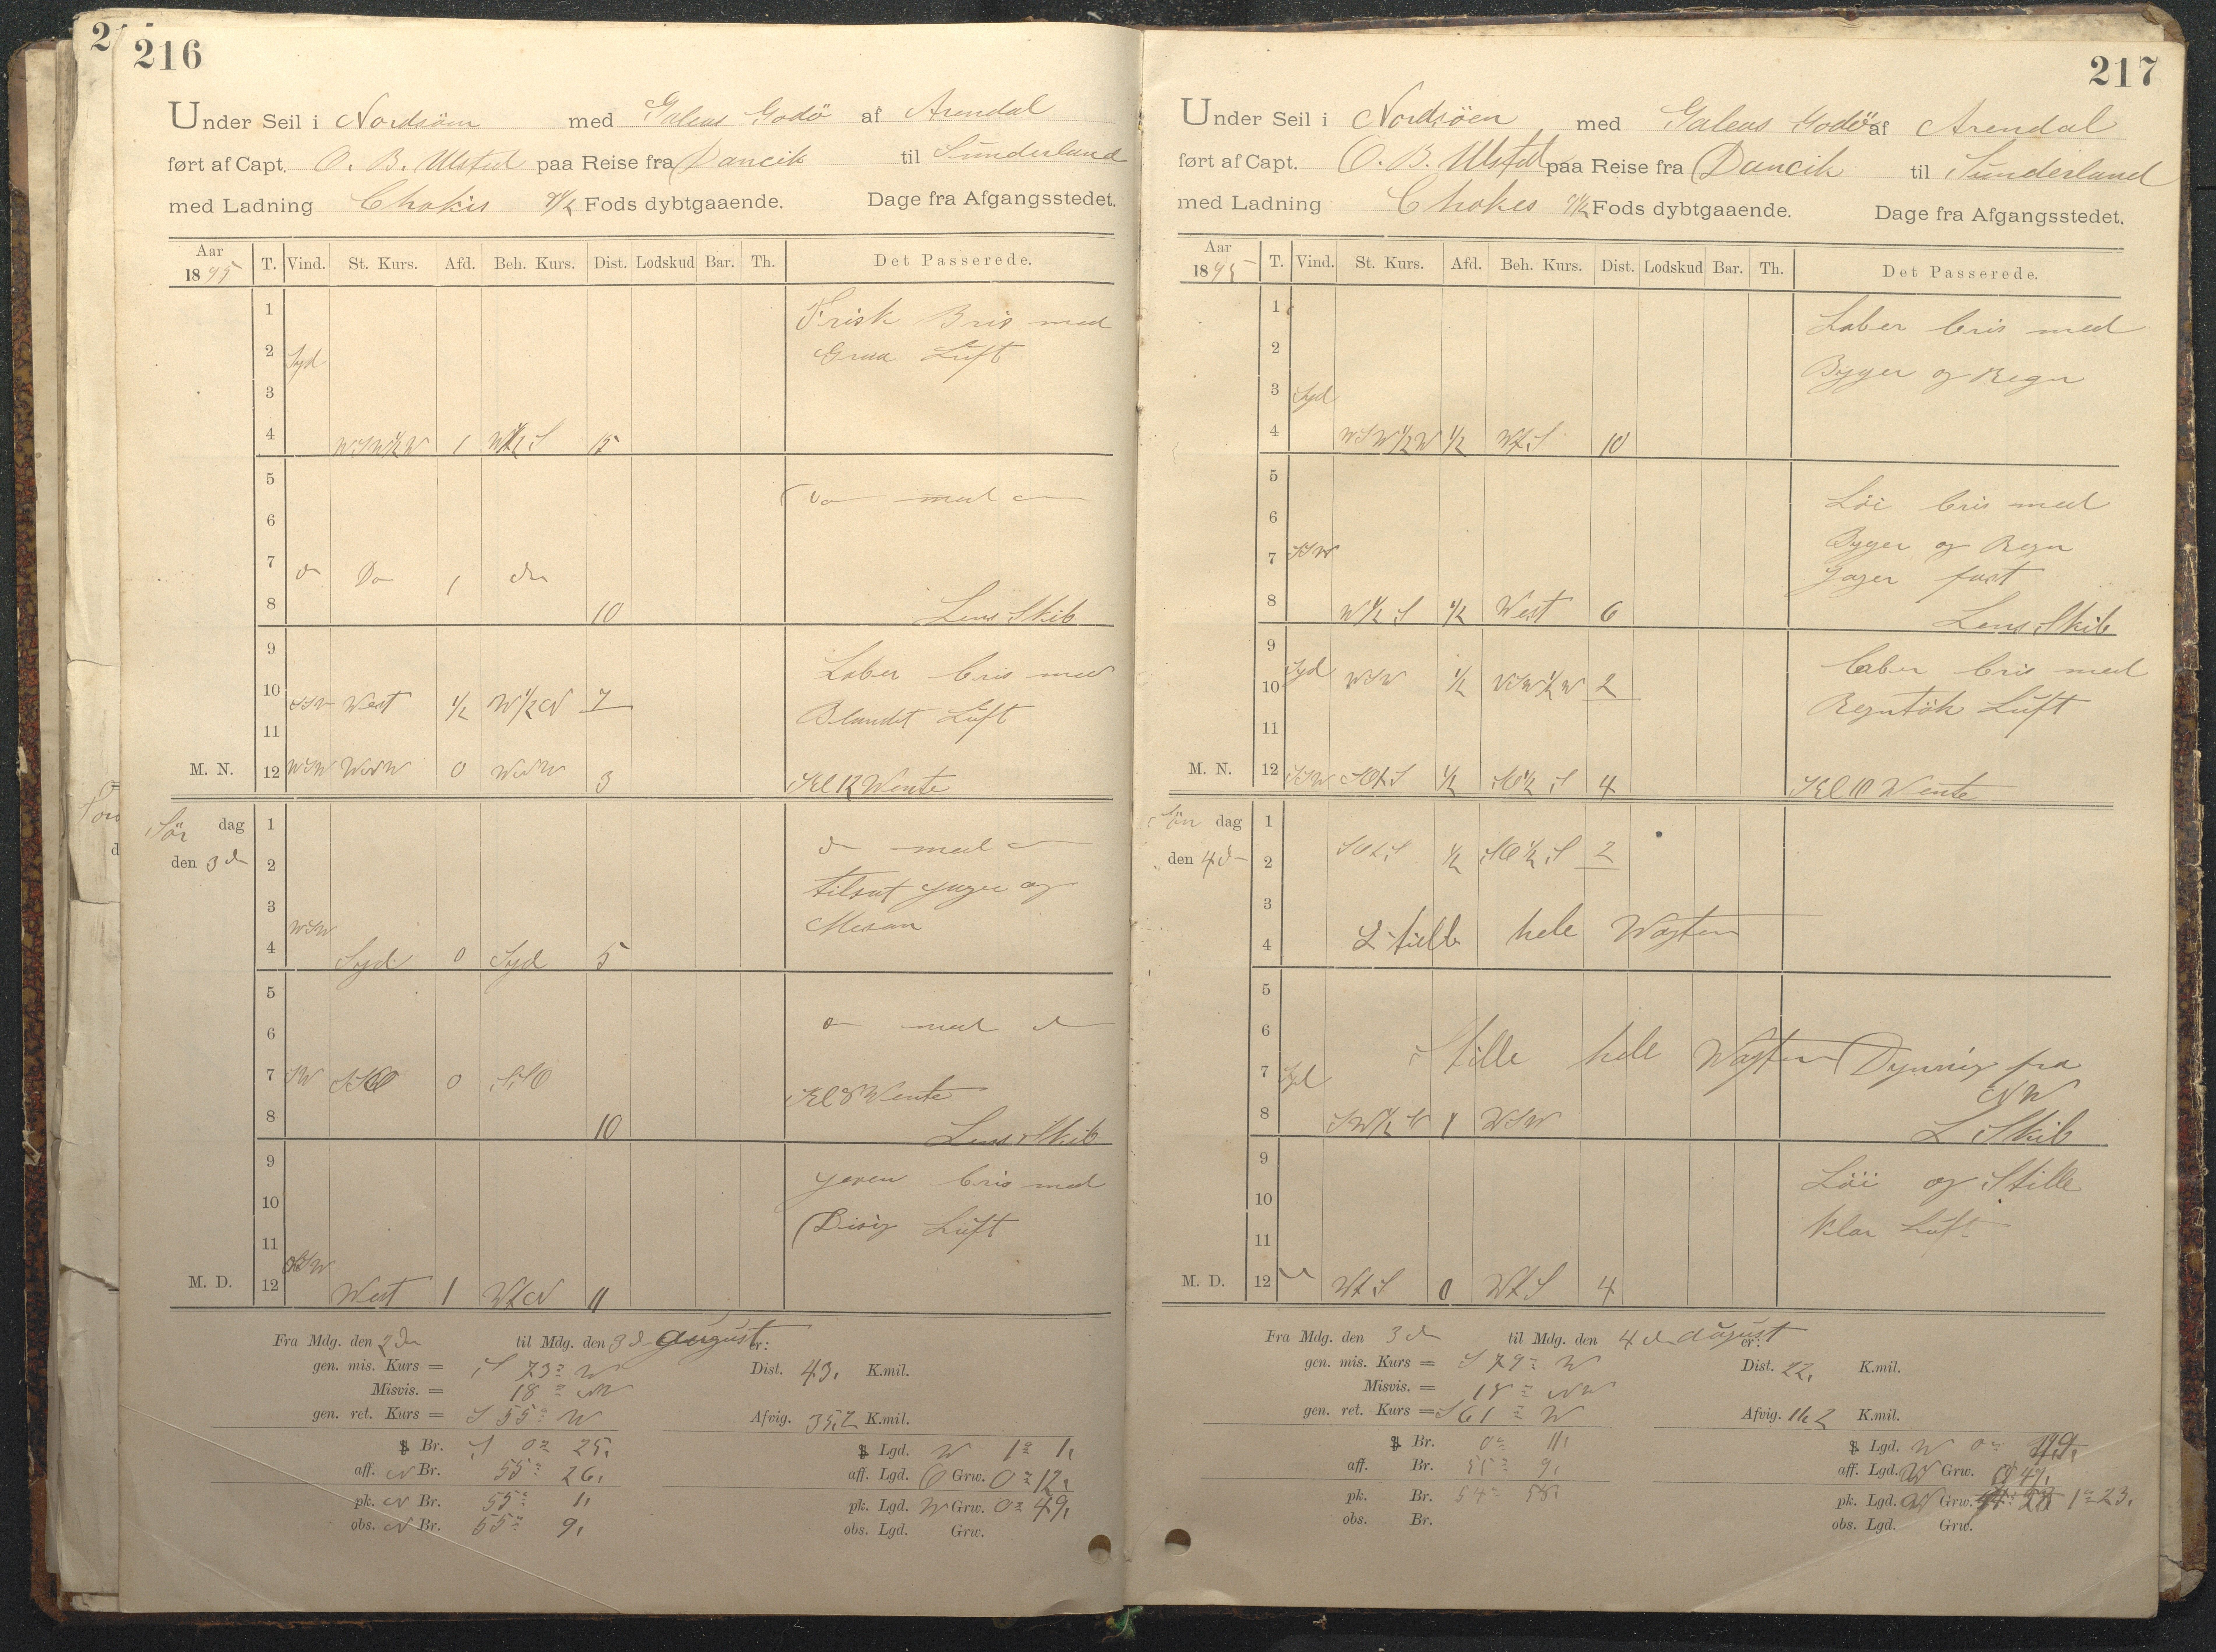 216
Under Seil i Nordsöen med Galeas Godö af Arendal
ført af Capt. O. B. Ulsted paa Reise fra Dancik til Sunderland
med Ladning Chokis Fods dybtgaaende. Dage fra Afgangsstedet.
Aar 1895 T. Vind. St. Kurs. Afd. Beh. Kurs. Dist. Lodskud Bar. Th. Det Passerede.
1 Frisk Bris med
2 Syd Graa Luft
3
4 WSW½W 1 W½S 15
5 Do med do
6
7 do Do 1 do
8 10 Lens Skib
9 Laber bris med
10 SSW West ½ W½N 7 Blandet Luft
11
M. N. 12 WSW WNW 0 WNW 3 Kl 12 Wente
Lör dag 1 do med do
den 3 d 2 tilsat Jager og
3 WSW Mesan
4 Syd 0 Syd 5
5 do med do
6
7 SW SSO 0 SSO Kl 8 Wente
8 10 Lens Skib
9 jeven bris med
10 Disig Luft
11
M. D. 12 WSW West 1 WtN 11
Fra Mdg. den 2 den til Mdg. den 3 d august er:
gen. mis. Kurs = S 73° W Dist. 43, K.mil.
Misvis. = 18° NW
gen. ret. Kurs = S 55° W Afvig. 35,2 K.mil.
Br. S 0° 25, Lgd. W 1° 1,
aff. N Br. 55° 26, aff. Lgd. O Grw. 0° 12,
pk. N Br. 55° 1, pk. Lgd. W Grw. 0° 49,
obs. N Br. 55° 9, obs. Lgd. Grw.
217
Under Seil i Nordsöen med Galeas Godö af Arendal
ført af Capt. O. B. Ulsted paa Reise fra Dancik til Sunderland
med Ladning Chokes Fods dybtgaaende. Dage fra Afgangsstedet.
Aar 1895 T. Vind. St. Kurs. Afd. Beh. Kurs. Dist. Lodskud Bar. Th. Det Passerede.
1 Laber bris med
2 Byger og Regn
3 Syd
4 WSW½W ½ WtS 10
5 Löi bris med
6 Byger og Regn
7 SSW Jager fast
8 W½S ½ West 6 Lens Skib
9 Laber bris med
10 Syd WSW ½ WSW½W 2 Regntök Luft
11
M. N. 12 SSW SOtS ½ SO½S 4 Kl 10 Wente
Sön dag 1
den 4 d 2 SOtS ½ SO½S 2
3
4 Stille hele Wagten
5
6 Stille hele Wagten Dynnig fra
7 Syd NW
8 1 WSW L Skib
9 Löi og Stille
10 Klar Luft
11
M. D. 12 WtS 0 WtS 4
Fra Mdg. den 3 d til Mdg. den 4 d august er:
gen. mis. Kurs = S 79° W Dist. 22, K.mil.
Misvis. = 18° NW
gen. ret. Kurs = S 61° W Afvig. K.mil.
Br. 0° 11, Lgd. W 0°
aff. Br. 55° 9, aff. Lgd. W Grw.
pk. Br. 54° 58, pk. Lgd. W Grw. 1° 23,
obs. Br. obs. Lgd. Grw.